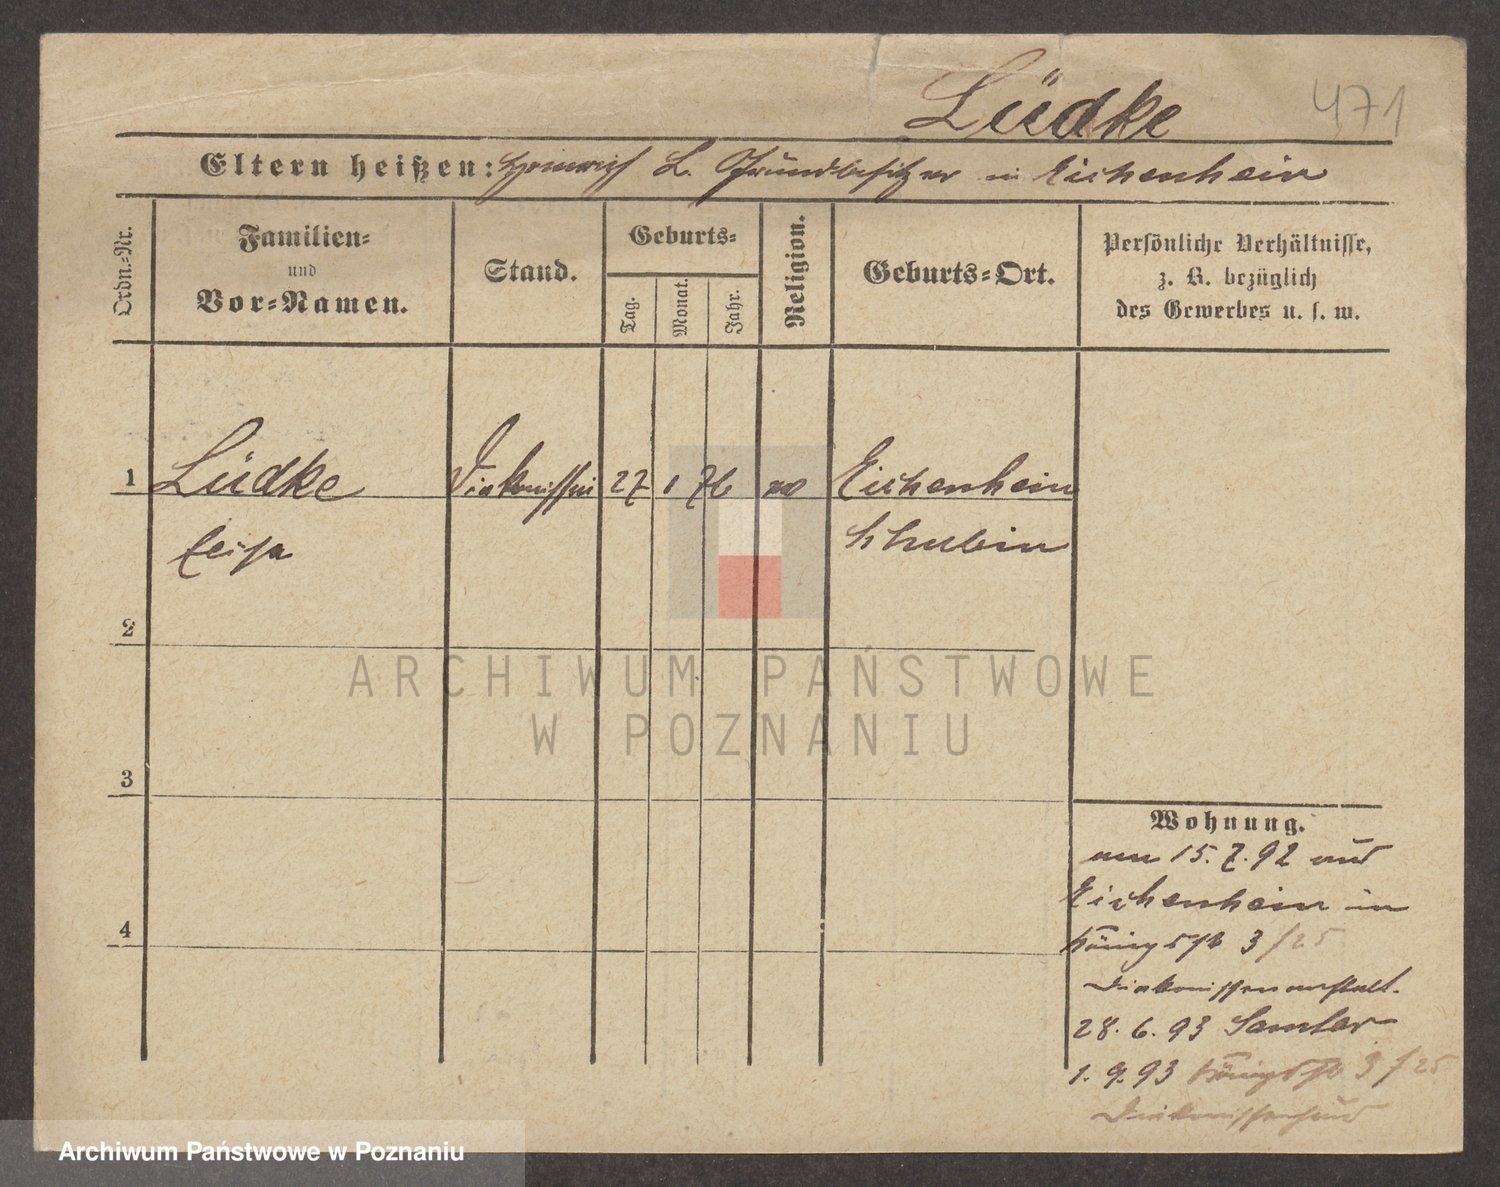 Lüdke
471
Eltern heißen: Heinrich L. Grundbesitzer in Eichenhain
Ordn.-Nr.
Familien-
und
Vor-Namen.
Stand.
Geburts-
Tag.
Monat.
Jahr.
Religion.
Geburts-Ort.
Persönliche Verhältnisse,
z. B. bezüglich
des Gewerbes u. s. w.
1 Lüdke Diakonissin 27 1 76 Eichenhain
Schubin
2
3
4
Wohnung.
am 15. 7. 92 aus
Eichenhain in
Königstr 3/25
Diakonissenanstalt.
28. 6. 93 Samter
1. 9. 93 Königstr 3/25
Diakonissenhaus
ARCHIWUM PAŃSTWOWE
W POZNANIU
Archiwum Państwowe w Poznaniu